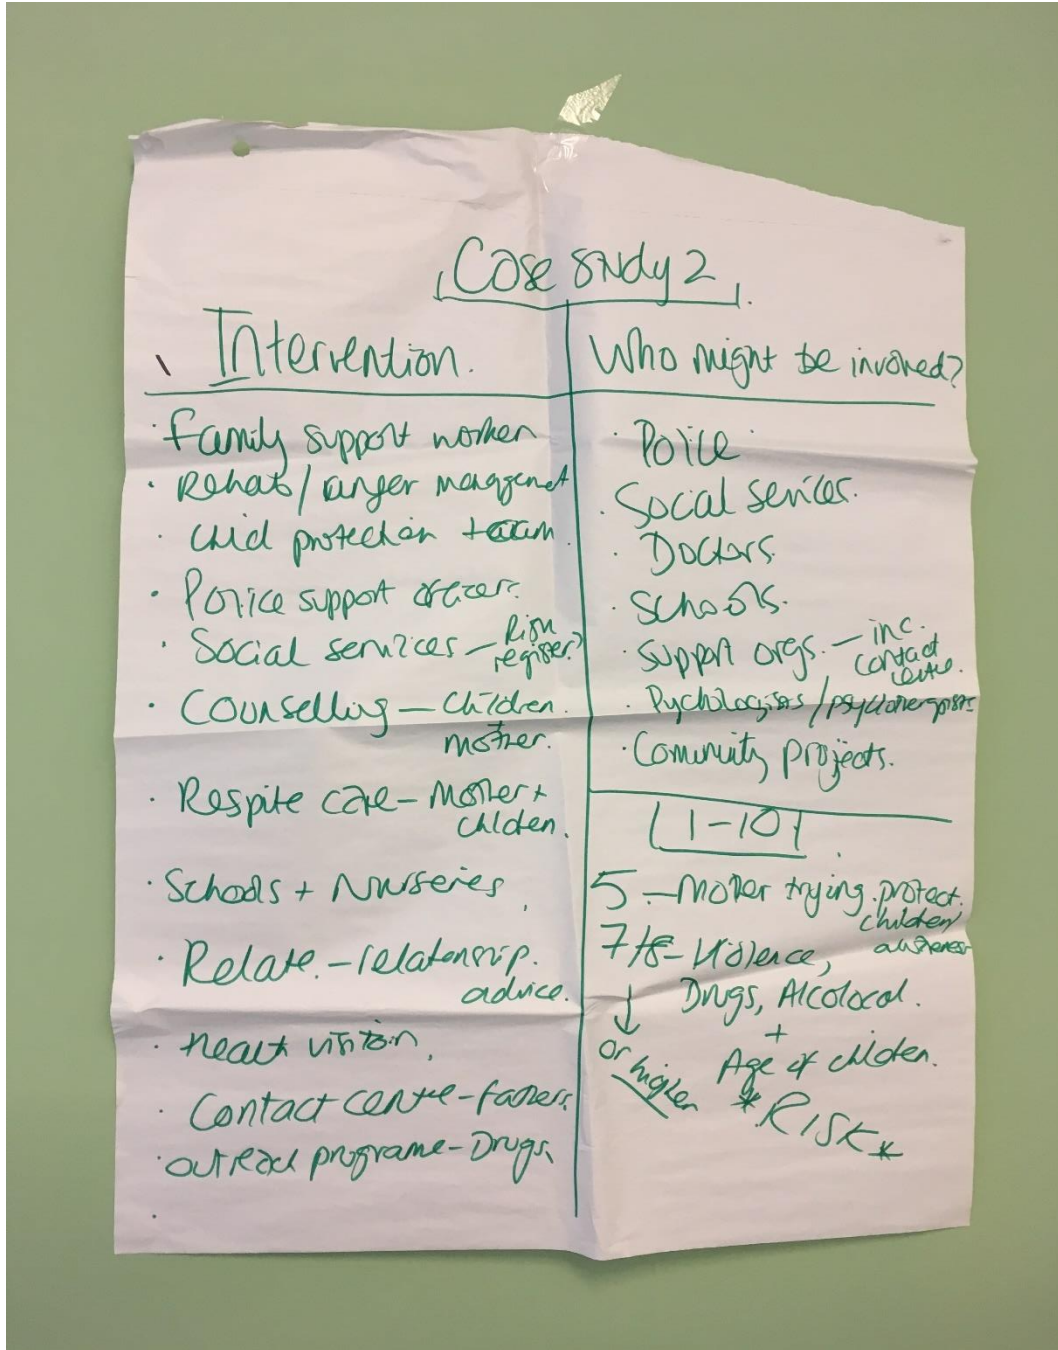 Case study 2
Intervention.
· Family support worker
· Rehab / anger management
· Child protection team
· Police support officer.
· Social services – Risk
register?
· Counselling – Children.
mother.
· Respite care – Mother +
children.
· Schools + Nurseries
· Relate. – relationship.
advice.
· Health visitor.
· Contact centre – fathers.
· Outreach programe – Drugs.
Who might be involved?
· Police
· Social services.
· Doctors.
· Schools.
· Support orgs. – inc.
contact
centre.
· Pychologists / psychotherapists
· Comunity projects.
1–10
5 – Mother trying protect.
children
awareness
7/8 – Violence,
Drugs, Alcolocal.
+
Age of children.
↓
Or higher
*RISK*